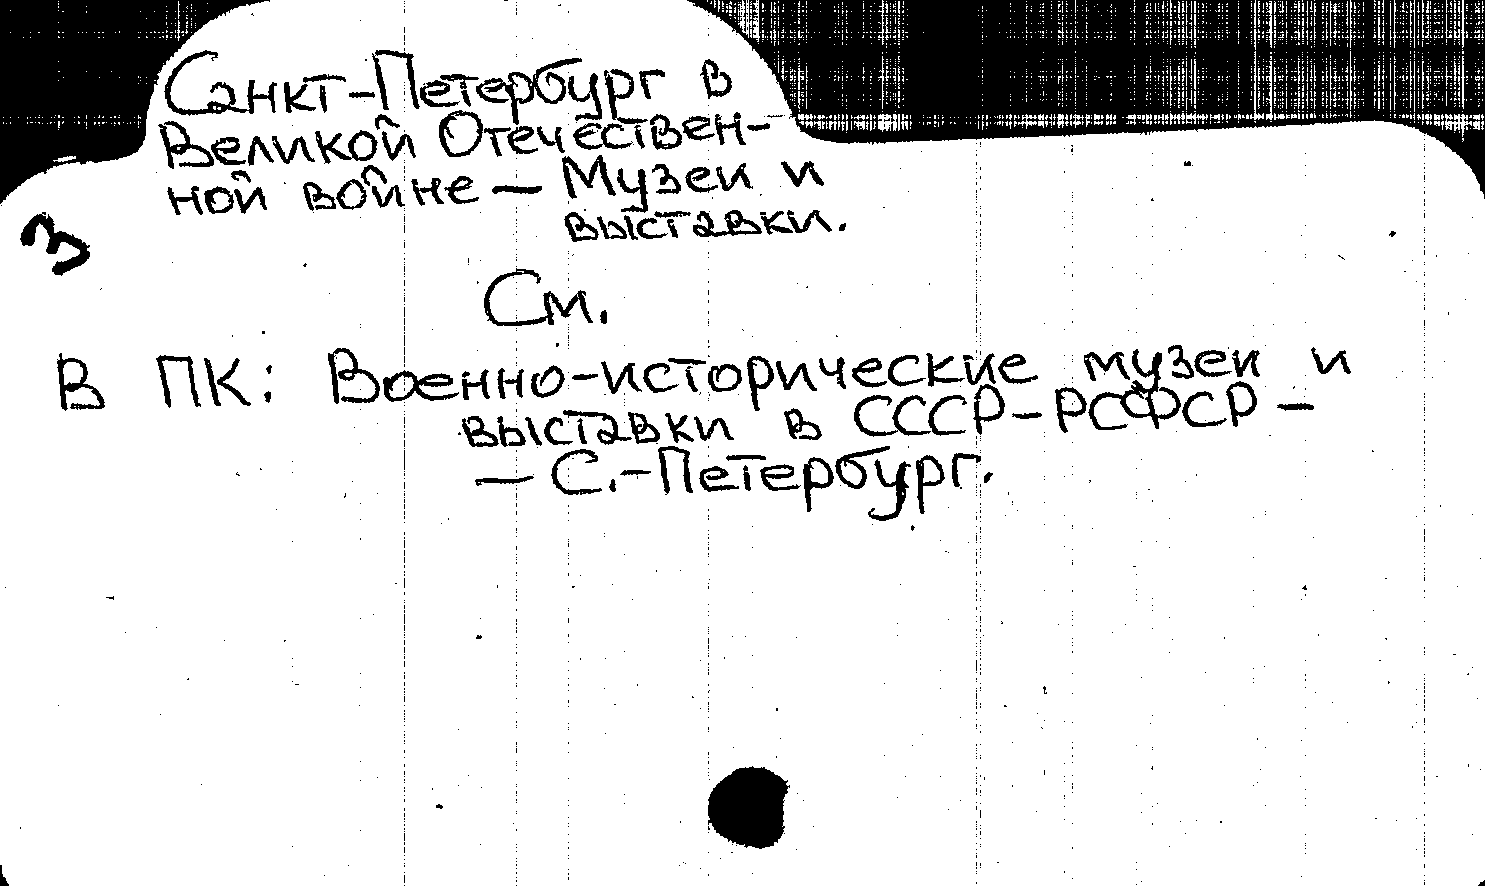 Санкт-Петербург в
Великой Отечествен-
ной войне — Музеи и
выставки.
3
См.
В ПК: Военно-исторические музеи и
выставки в СССР-РСФСР —
— С.-Петербург.